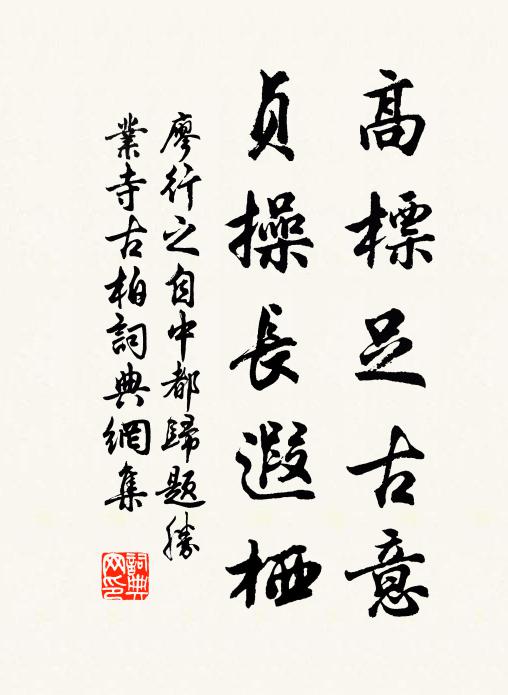 高標足古意
貞操長遐栖
廖行之自中都歸題勝
業寺古柏詞典網集
詞典網印